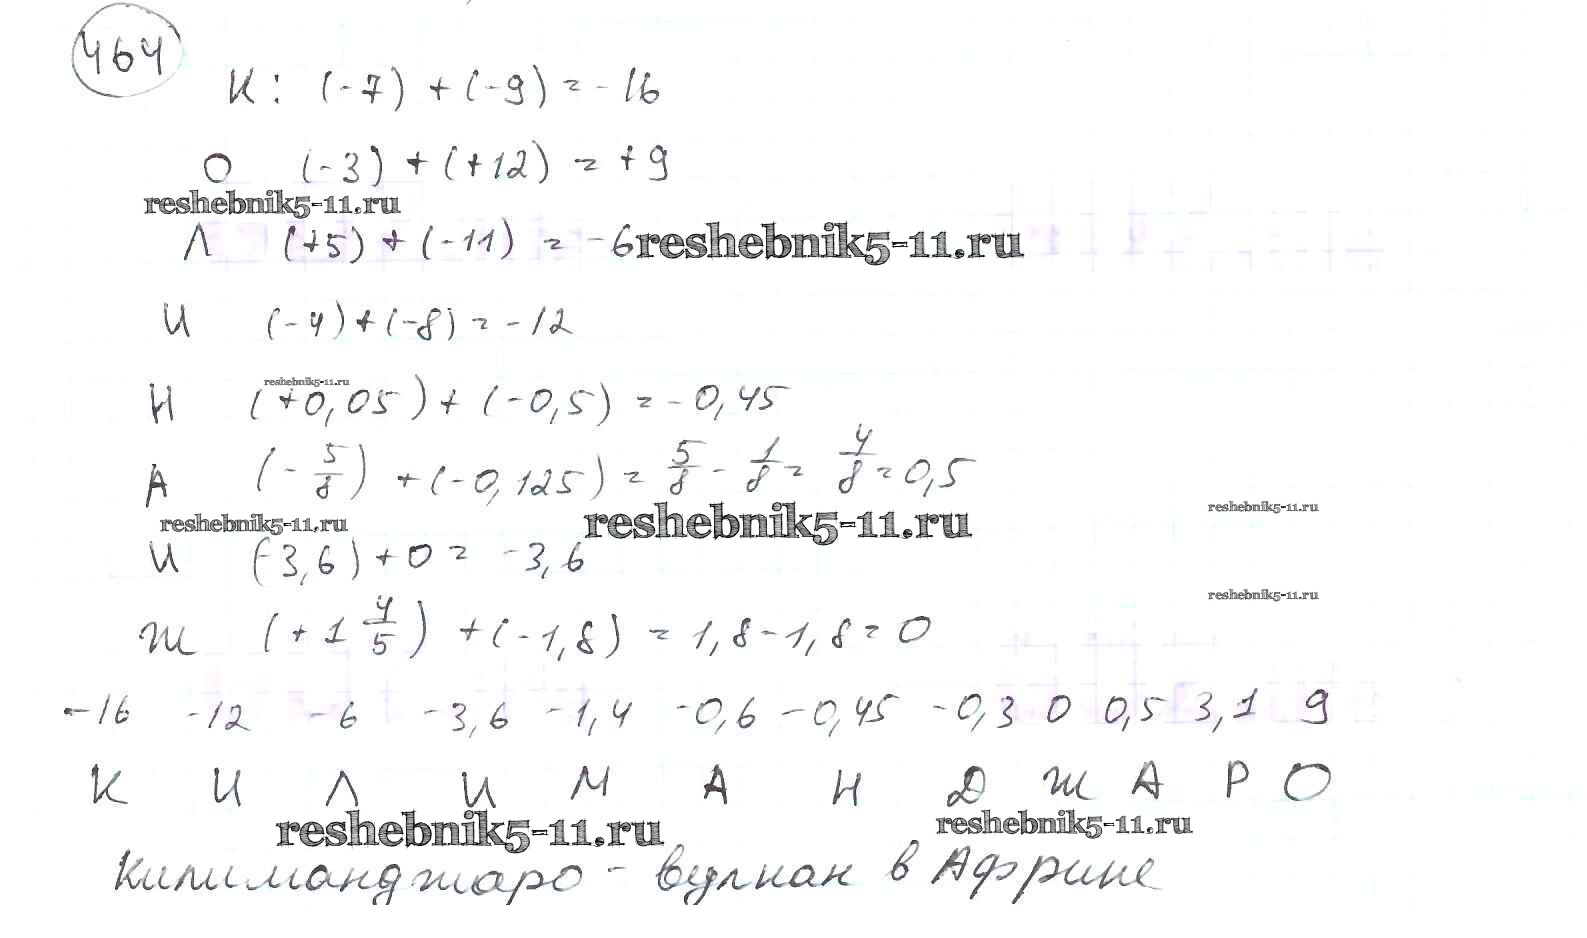 464
К: (-7) + (-9) = -16
О (-3) + (+12) = +9
reshebnik5-11.ru
Л (+5) + (-11) = -6 reshebnik5-11.ru
И (-4) + (-8) = -12
reshebnik5-11.ru
Н (+0,05) + (-0,5) = -0,45
А (- 5/8) + (-0,125) = 5/8 - 1/8 = 4/8 = 0,5
reshebnik5-11.ru reshebnik5-11.ru reshebnik5-11.ru
И (-3,6) + 0 = -3,6
reshebnik5-11.ru
Ж (+ 1 4/5) + (-1,8) = 1,8 - 1,8 = 0
-16 -12 -6 -3,6 -1,4 -0,6 -0,45 -0,3 0 0,5 3,1 9
К И Л И М А Н Д Ж А Р О
reshebnik5-11.ru reshebnik5-11.ru
Килиманджаро - вулкан в Африке